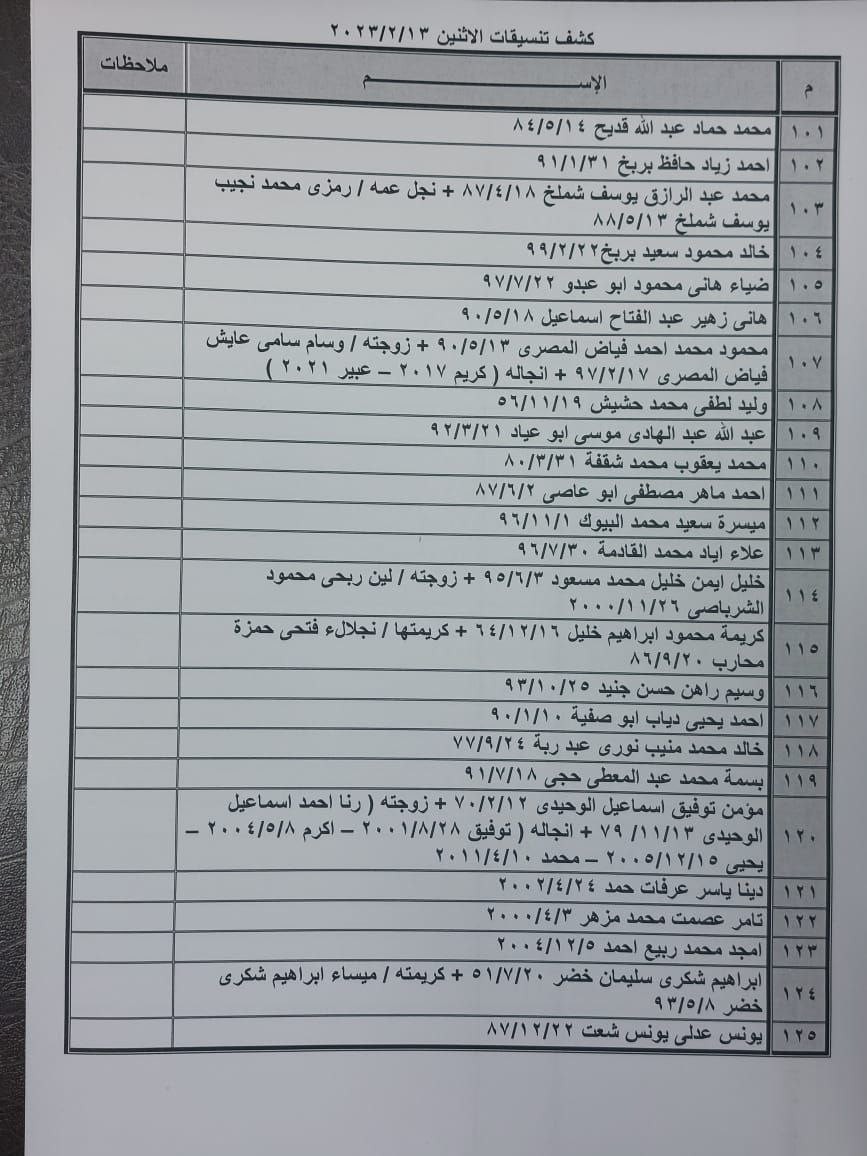 كشف تنسيقات الاثنين ٢٠٢٣/٢/١٣
م الإســـــــم ملاحظات
١٠١ محمد حماد عبد الله قديح ٨٤/٥/١٤
١٠٢ احمد زياد حافظ بربخ ٩١/١/٣١
١٠٣ محمد عبد الرازق يوسف شملخ ٨٧/٤/١٨ + نجل عمه / رمزى محمد نجيب
يوسف شملخ ٨٨/٥/١٣
١٠٤ خالد محمود سعيد بربخ٩٩/٢/٢٢
١٠٥ ضياء هانى محمود ابو عبدو ٩٧/٧/٢٢
١٠٦ هانى زهير عبد الفتاح اسماعيل ٩٠/٥/١٨
١٠٧ محمود محمد احمد فياض المصرى ٩٠/٥/١٣ + زوجته / وسام سامى عايش
فياض المصرى ٩٧/٢/١٧ + انجاله ( كريم ٢٠١٧ – عبير ٢٠٢١ )
١٠٨ وليد لطفى محمد حشيش ٥٦/١١/١٩
١٠٩ عبد الله عبد الهادى موسى ابو عياد ٩٢/٣/٢١
١١٠ محمد يعقوب محمد شقفة ٨٠/٣/٣١
١١١ احمد ماهر مصطفى ابو عاصى ٨٧/٦/٢
١١٢ ميسرة سعيد محمد البيوك ٩٦/١١/١
١١٣ علاء اياد محمد القادمة ٩٦/٧/٣٠
١١٤ خليل ايمن خليل محمد مسعود ٩٥/٦/٣ + زوجته / لين ربحى محمود
الشرباصى ٢٠٠٠/١١/٢٦
١١٥ كريمة محمود ابراهيم خليل ٦٤/١٢/١٦ + كريمتها / نجلالء فتحى حمزة
محارب ٨٦/٩/٢٠
١١٦ وسيم راهن حسن جنيد ٩٣/١٠/٢٥
١١٧ احمد يحيى دياب ابو صفية ٩٠/١/١٠
١١٨ خالد محمد منيب نورى عبد ربة ٧٧/٩/٢٤
١١٩ بسمة محمد عبد المعطى حجى ٩١/٧/١٨
١٢٠ مؤمن توفيق اسماعيل الوحيدى ٧٠/٢/١٢ + زوجته ( رنا احمد اسماعيل
الوحيدى ٧٩/١١/١٣ + انجاله ( توفيق ٢٠٠١/٨/٢٨ – اكرم ٢٠٠٤/٥/٨ –
يحيى ٢٠٠٥/١٢/١٥ – محمد ٢٠١١/٤/١٠
١٢١ دينا ياسر عرفات حمد ٢٠٠٢/٤/٢٤
١٢٢ تامر عصمت محمد مزهر ٢٠٠٠/٤/٣
١٢٣ امجد محمد ربيع احمد ٢٠٠٤/١٢/٥
١٢٤ ابراهيم شكرى سليمان خضر ٥١/٧/٢٠ + كريمته / ميساء ابراهيم شكرى
خضر ٩٣/٥/٨
١٢٥ يونس عدلى يونس شعت ٨٧/١٢/٢٢